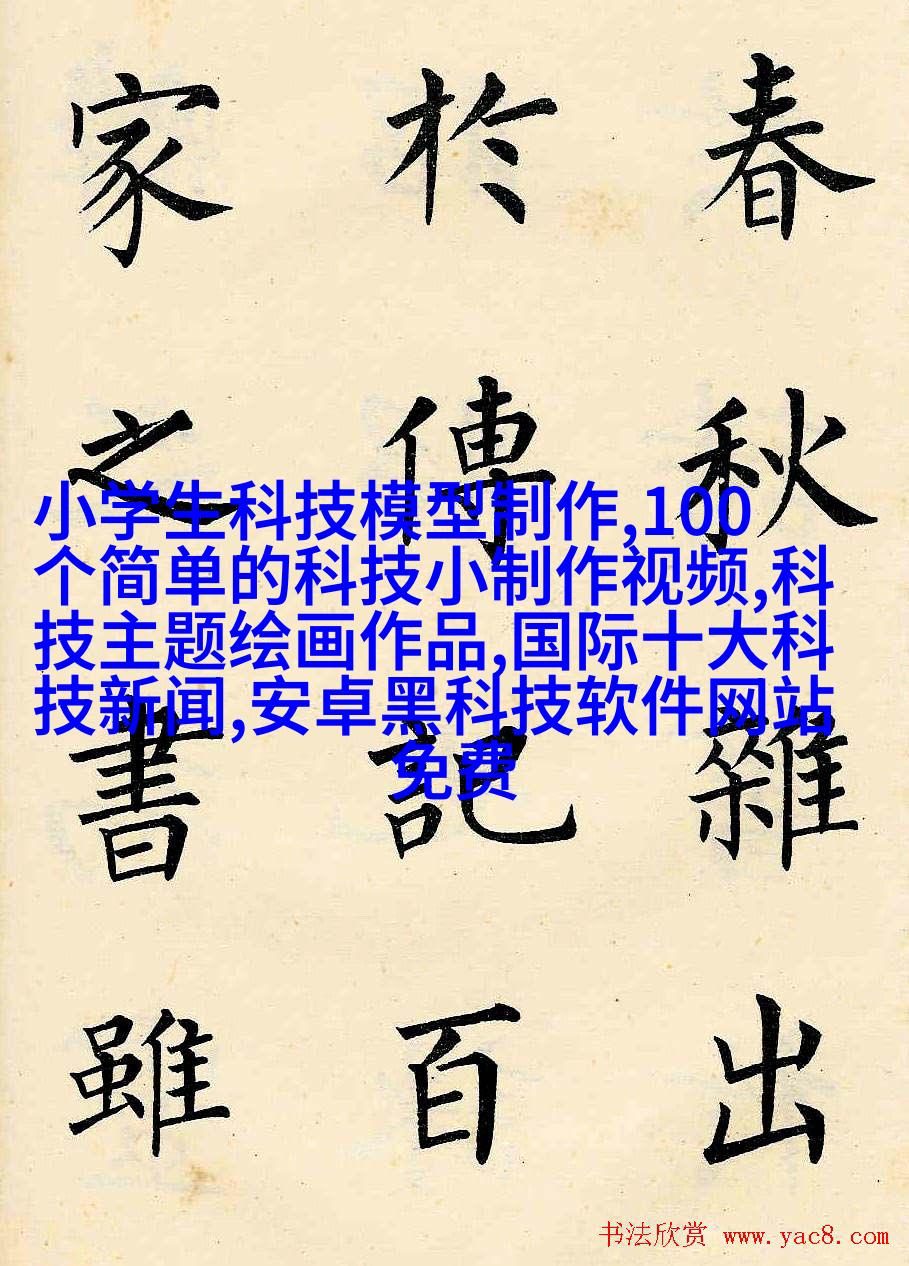 春秋雜出
於傳記百
家之書雖
小学生科技模型制作,100
个简单的科技小制作视频,科
技主题绘画作品,国际十大科
技新闻,安卓黑科技软件网站
免费
书法欣赏 www.yac8.com